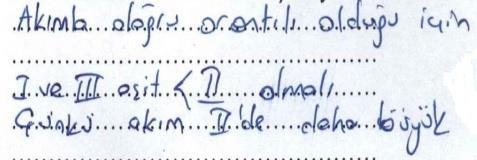 Akımla doğru orantılı olduğu için
I ve III eşit < II olmalı
Çünkü akım II'de daha büyük